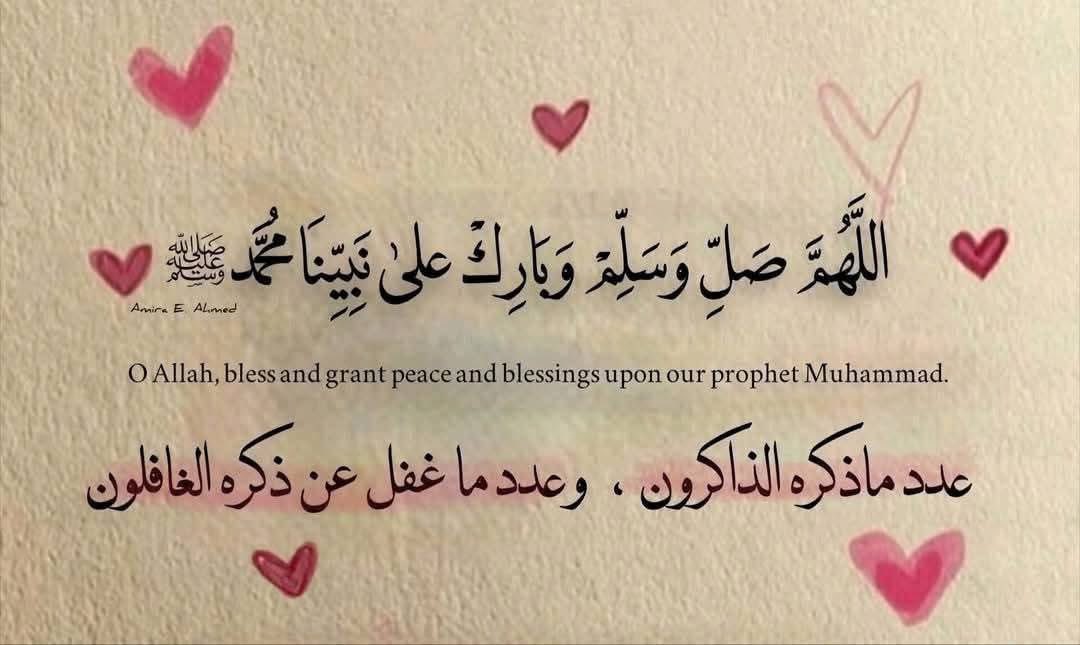 اللَّهُمَّ صَلِّ وَسَلِّمْ وَبَارِكْ على نَبِيِّنَا مُحَمَّد ﷺ
Amira E. Ahmed
O Allah, bless and grant peace and blessings upon our prophet Muhammad.
عدد ماذكره الذاكرون ، وعدد ما غفل عن ذكره الغافلون